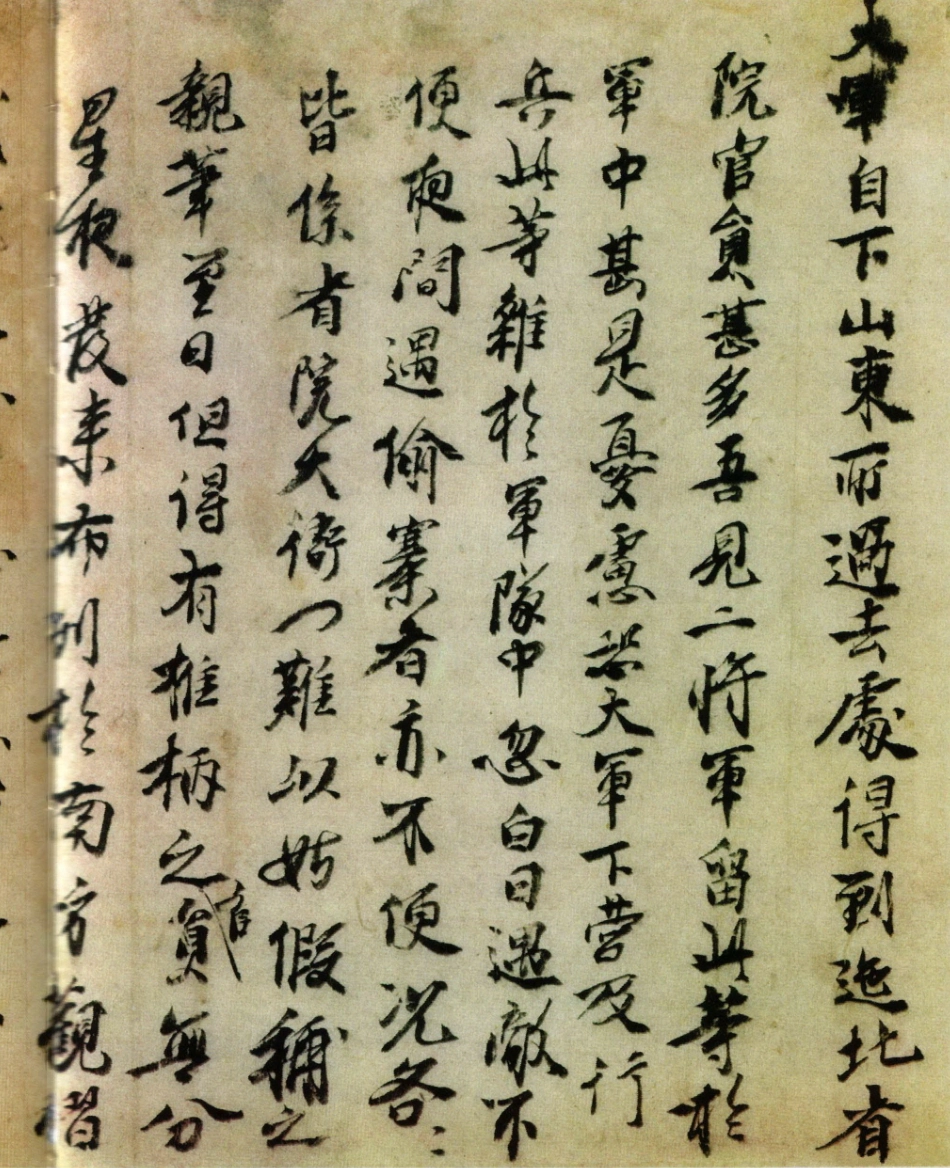 大軍自下山東所過去處得到迤北省
院官員甚多吾見二將軍留此等於
軍中甚是憂慮恐大軍下營及行
兵此等雜於軍隊中忽白日遇敵不
便夜間遇偷寨者亦不便況各〻
皆係省院大衙门難以姑假稱之
親筆至日但得有椎柄之官員無分
星夜發来布列於南方觀